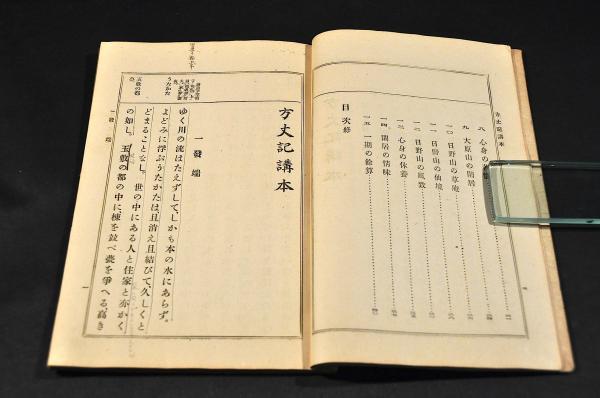 方丈記講本
八 心身の
九 大原山の閑居
一〇 日野山の草庵
一一 日野山の仙境
一二 日野山の風致
一三 心身の休養
一四 閑居の情味
一五 一期の総算
目次終
方丈記講本
一 發端
ゆく川の流はたえずして、しかも本の水にあらず。
よどみに浮ぶうたかたは、且消え且結びて、久しくと
どまることなし。世の中にある人と住家と亦かく
の如し。玉敷の都の中に棟を竝べ甍を爭へる、高き
うたかた
玉敷の都
一 發端
一